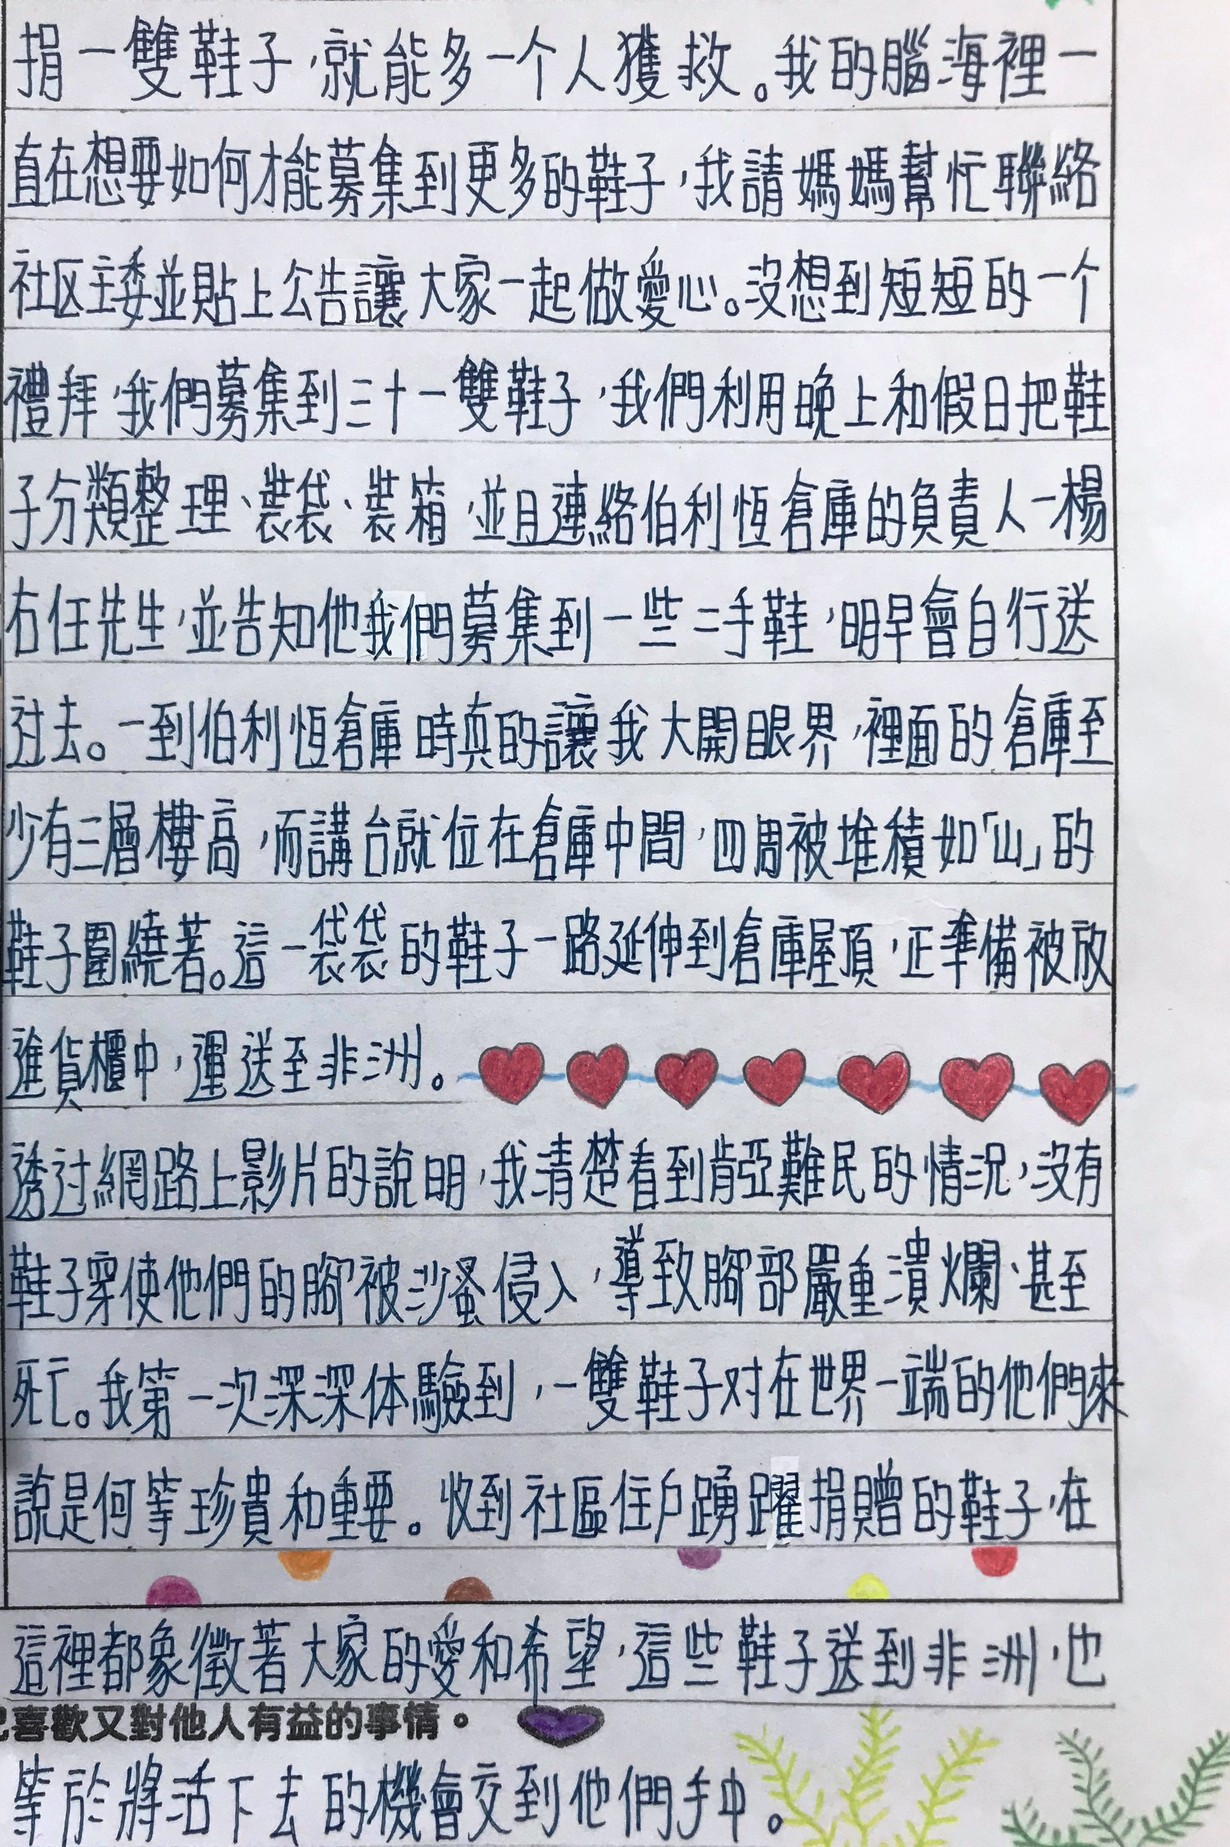 捐一雙鞋子，就能多一个人獲救。我的腦海裡一
直在想要如何才能募集到更多的鞋子，我請媽媽幫忙聯絡
社区主委並貼上公告讓大家一起做愛心。沒想到短短的一个
禮拜，我們募集到三十一雙鞋子，我們利用晚上和假日把鞋
子分類整理、裝袋、裝箱，並且連絡伯利恆倉庫的負責人－楊
右任先生，並告知他我們募集到一些二手鞋，明早會自行送
过去。一到伯利恆倉庫時真的讓我大開眼界，裡面的倉庫至
少有三層樓高，而講台就位在倉庫中間，四周被堆積如「山」的
鞋子圍繞著。這一袋袋的鞋子一路延伸到倉庫屋頂，正準備被放
進貨櫃中，運送至非洲。
透过網路上影片的說明，我清楚看到肯亞難民的情況，沒有
鞋子穿使他們的腳被沙蚤侵入，導致腳部嚴重潰爛、甚至
死亡。我第一次深深体驗到，一雙鞋子对在世界一端的他們來
說是何等珍貴和重要。收到社區住戶踴躍捐贈的鞋子，在
這裡都象徵著大家的愛和希望，這些鞋子送到非洲，也
己喜歡又對他人有益的事情。
等於將活下去的機會交到他們手中。